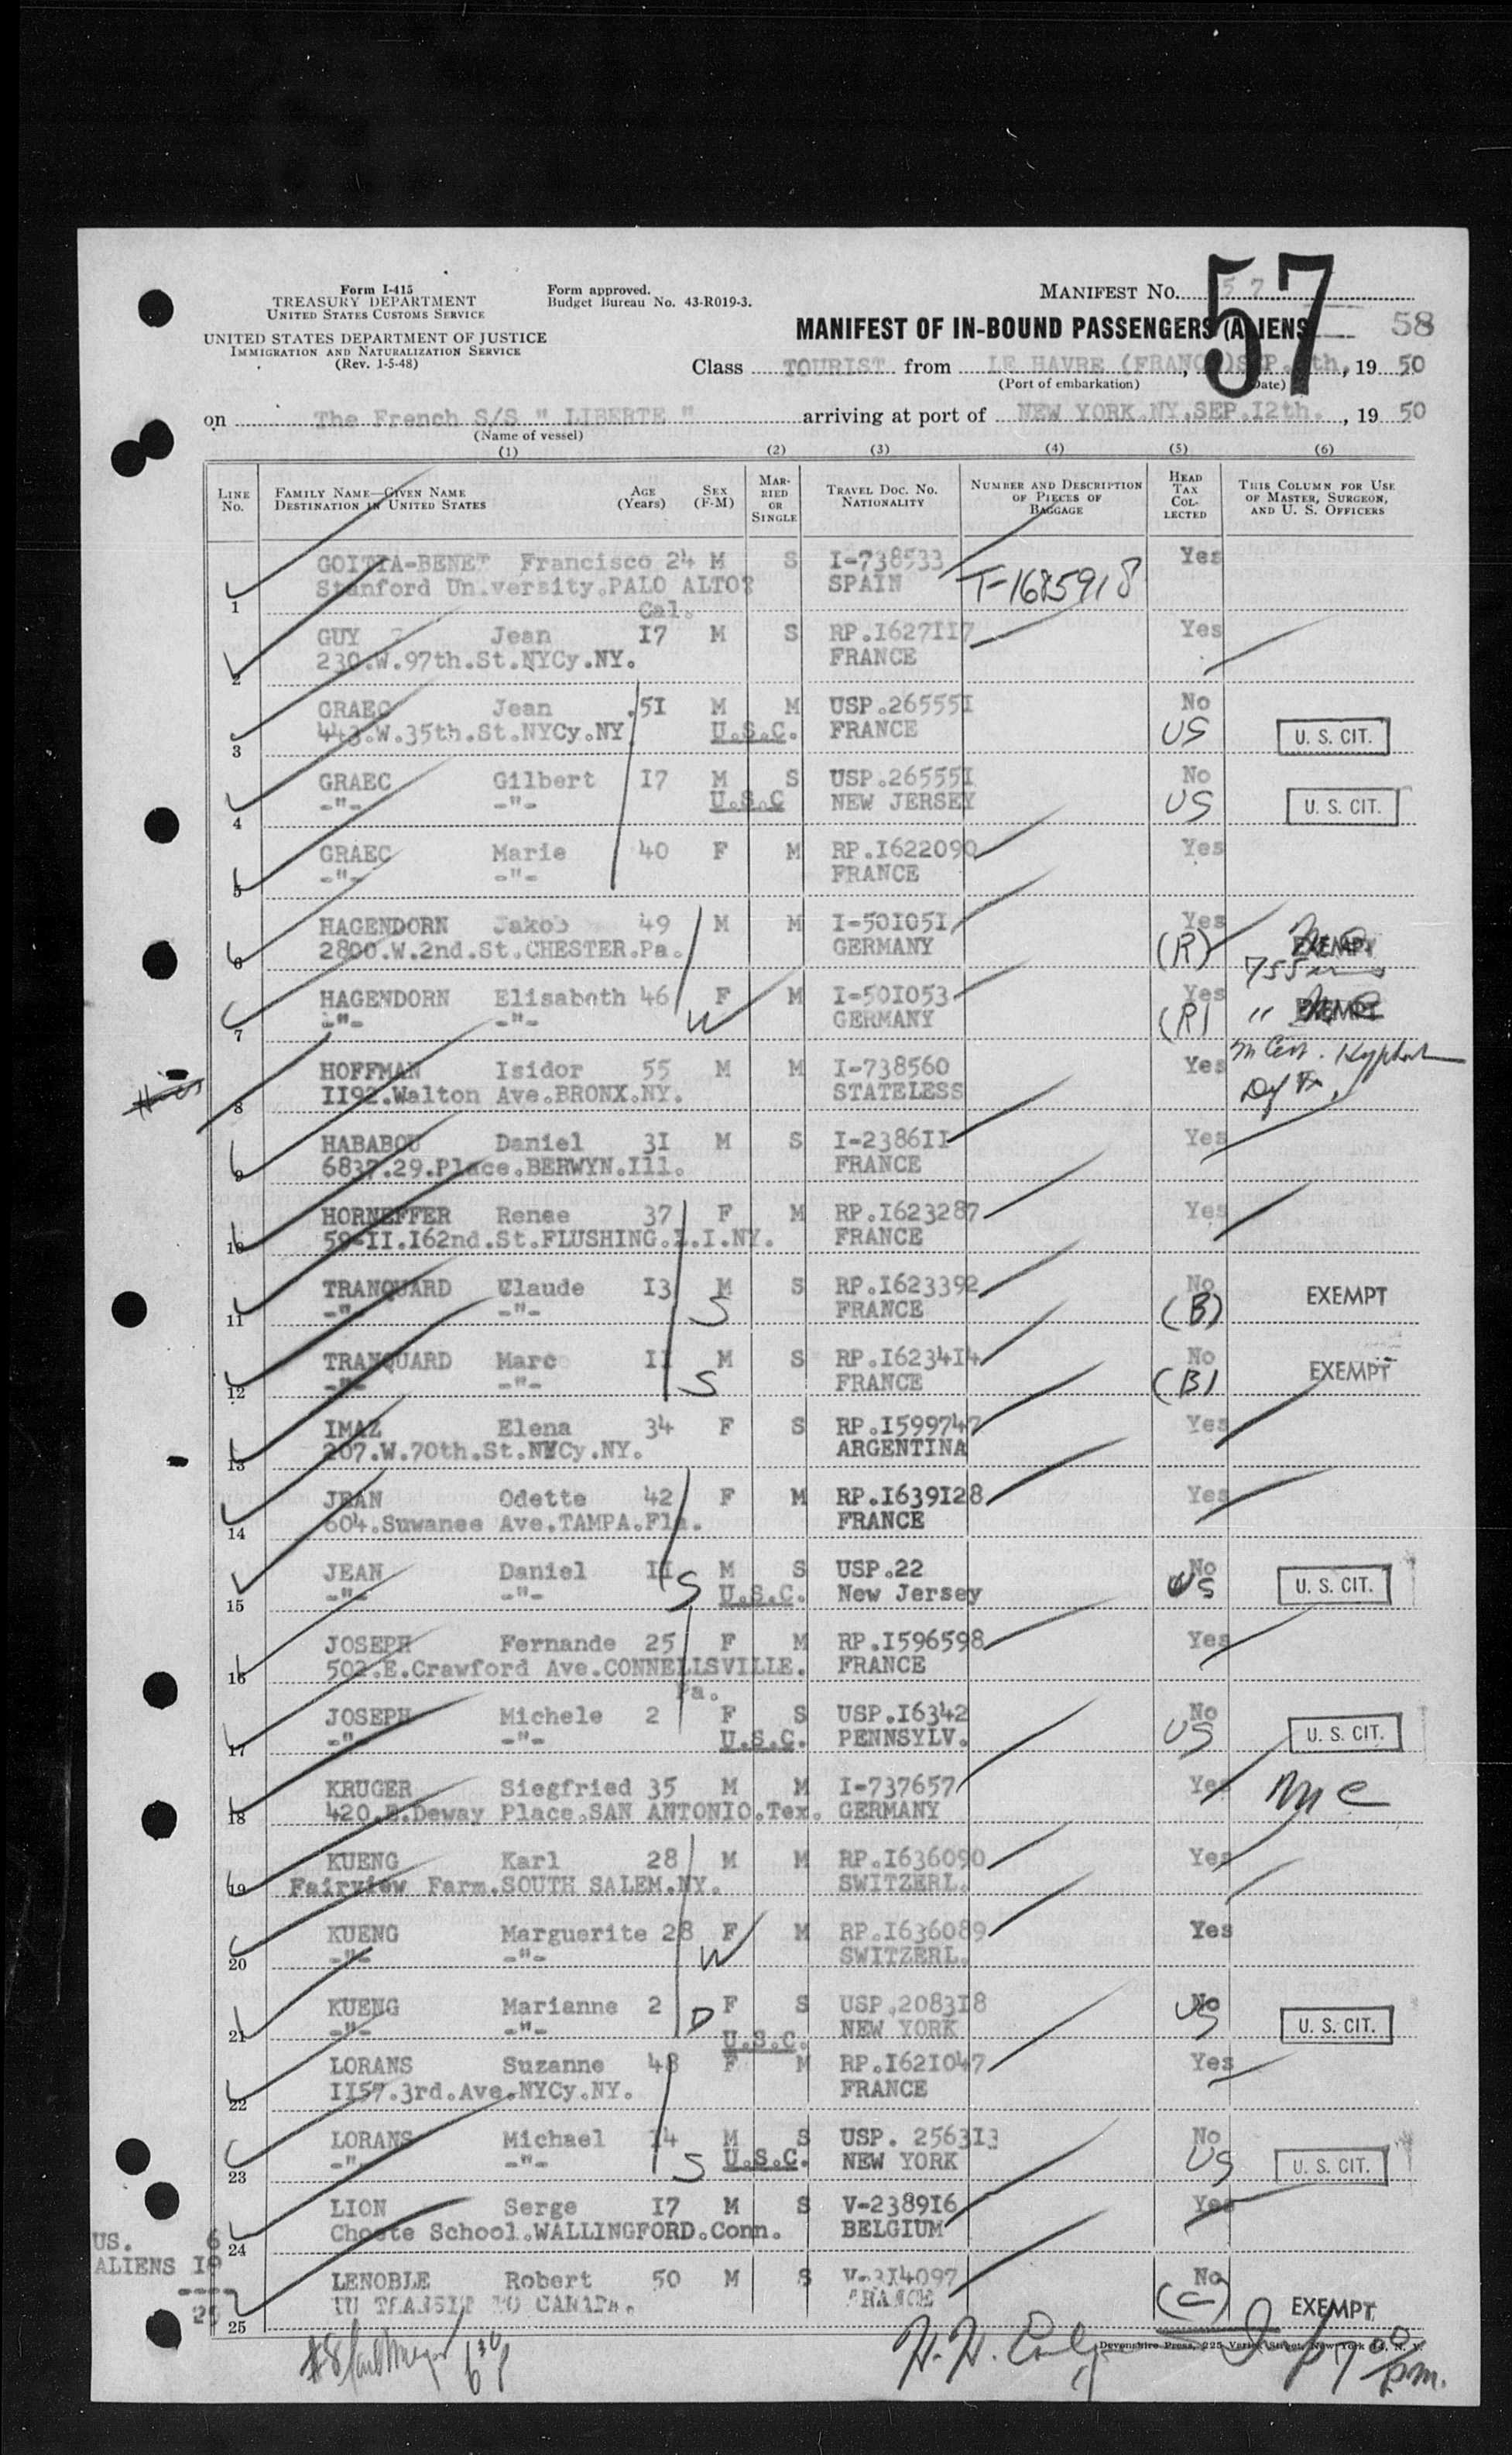 Form I-415
TREASURY DEPARTMENT
UNITED STATES CUSTOMS SERVICE
UNITED STATES DEPARTMENT OF JUSTICE
IMMIGRATION AND NATURALIZATION SERVICE
(Rev. 1-5-48)
Form approved.
Budget Bureau No. 43-R019-3.
MANIFEST NO. 57
57
58
MANIFEST OF IN-BOUND PASSENGERS (ALIENS
Class TOURIST from LE HAVRE (FRANCE) SEP. th. , 19 50
(Port of embarkation) (Date)
on The French S/S " LIBERTE " arriving at port of NEW YORK.NY.SEP.12th. , 19 50
(Name of vessel)
(1) (2) (3) (4) (5) (6)
LINE No. FAMILY NAME—GIVEN NAME DESTINATION IN UNITED STATES AGE (Years) SEX (F-M) MARRIED OR SINGLE TRAVEL DOC. NO. NATIONALITY NUMBER AND DESCRIPTION OF PIECES OF BAGGAGE HEAD TAX COLLECTED THIS COLUMN FOR USE OF MASTER, SURGEON, AND U. S. OFFICERS
GOITIA-BENET Francisco 24 M S I-738533 Yes
1 Stanford University.PALO ALTO? SPAIN T-1685918
Cal.
GUY Jean I7 M S RP.I627II7 Yes
2 230.W.97th.St.NYCy.NY. FRANCE
GRAEC Jean .5I M M USP.26555I No
3 443.W.35th.St.NYCy.NY U.S.C. FRANCE US U. S. CIT.
GRAEC Gilbert I7 M S USP.26555I No
4 -"- -"- U.S.C NEW JERSEY US U. S. CIT.
GRAEC Marie 40 F M RP.I622090 Yes
5 -"- -"- FRANCE
HAGENDORN Jakob 49 M M I-50I05I Yes
6 2800.W.2nd.St.CHESTER.Pa. GERMANY (R) EXEMPT
HAGENDORN Elisabeth 46 F M I-50I053 Yes
7 -"- -"- W GERMANY (R) " EXEMPT
HOFFMAN Isidor 55 M M I-738560 Yes
8 II92.Walton Ave.BRONX.NY. STATELESS
HABABOU Daniel 3I M S I-2386II Yes
9 6837.29.Place.BERWYN.Ill. FRANCE
HORNEFFER Renee 37 F M RP.I623287 Yes
10 59-II.I62nd.St.FLUSHING.L.I.NY. FRANCE
TRANQUARD Claude I3 M S RP.I623392 No
11 -"- -"- S FRANCE (B) EXEMPT
TRANQUARD Marc II M S RP.I6234I4 No
12 -"- -"- S FRANCE (B) EXEMPT
IMAZ Elena 34 F S RP.I599747 Yes
13 207.W.70th.St.NYCy.NY. ARGENTINA
JEAN Odette 42 F M RP.I639I28 Yes
14 604.Suwanee Ave.TAMPA.Fla. FRANCE
JEAN Daniel II M S USP.22 No
15 -"- -"- S U.S.C. New Jersey US U. S. CIT.
JOSEPH Fernande 25 F M RP.I596598 Yes
16 502.E.Crawford Ave.CONNELLSVILLE. FRANCE
Pa.
JOSEPH Michele 2 F S USP.I6342 No
17 -"- -"- U.S.C. PENNSYLV. US U. S. CIT.
KRUGER Siegfried 35 M M I-737657 Yes
18 420.E.Deway Place.SAN ANTONIO.Tex. GERMANY
KUENG Karl 28 M M RP.I636090 Yes
19 Fairview Farm.SOUTH SALEM.NY. SWITZERL.
KUENG Marguerite 28 F M RP.I636089 Yes
20 -"- -"- W SWITZERL.
KUENG Marianne 2 F S USP.2083I8 No
21 -"- -"- D U.S.C. NEW YORK US U. S. CIT.
LORANS Suzanne 48 F M RP.I62I047 Yes
22 II57.3rd.Ave.NYCy.NY. FRANCE
LORANS Michael I4 M S USP. 2563I3 No
23 -"- -"- S U.S.C. NEW YORK US U. S. CIT.
LION Serge I7 M S V-2389I6 Yes
24 Choate School.WALLINGFORD.Conn. BELGIUM
LENOBLE Robert 50 M S V-3I4097 No
25 IN TRANSIT TO CANADA. FRANCE (C) EXEMPT
US. 6
ALIENS I9
25
Devonshire Press, 225 Varick Street, New York 14, N. Y.